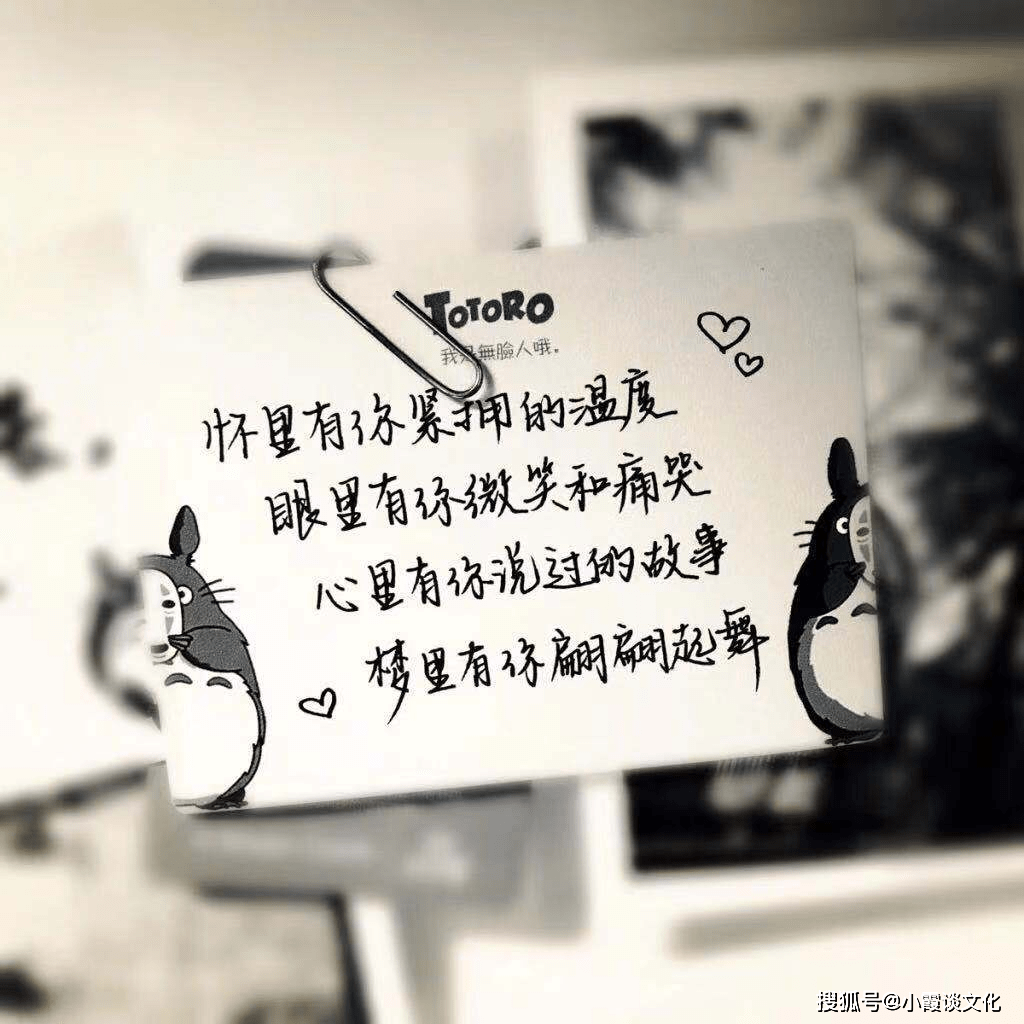 TOTORO
我是無臉人哦。
怀里有你紧拥的温度
眼里有你微笑和痛哭
心里有你说过的故事
梦里有你翩翩起舞
搜狐号@小霞谈文化